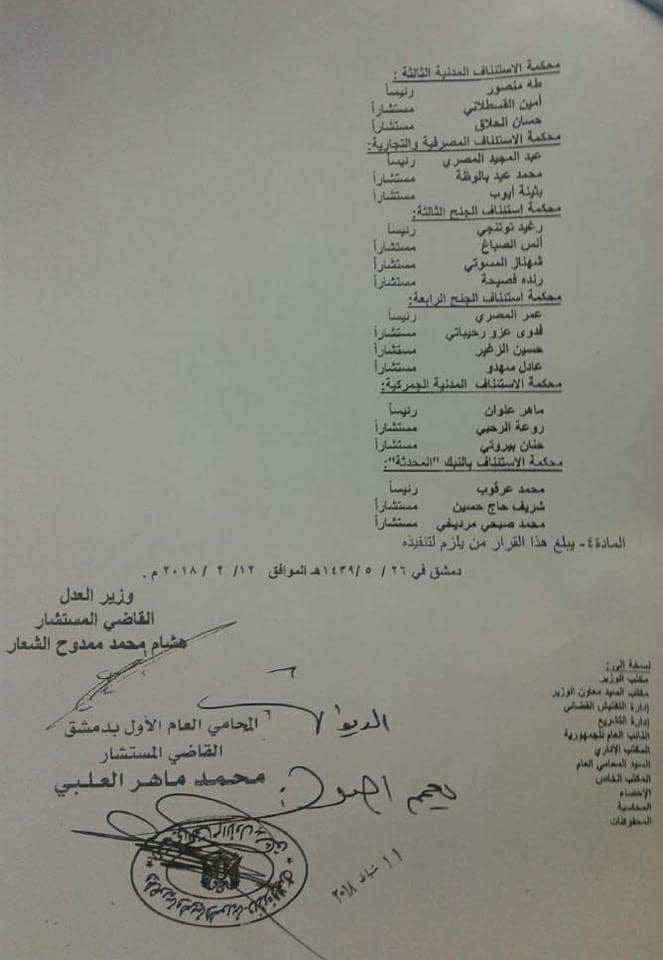 محكمة الاستئناف المدنية الثالثة :
طه منصور رئيساً
أمين القسطلاني مستشاراً
حسان الحلاق مستشاراً
محكمة الاستئناف المصرفية والتجارية:
عبد المجيد المصري رئيساً
محمد عيد بالوظة مستشاراً
بثينة أيوب مستشاراً
محكمة استئناف الجنح الثالثة:
رغيد توتنجي رئيساً
أنس الصباغ مستشاراً
شهناز المسوتي مستشاراً
رنده فصيحة مستشاراً
محكمة استئناف الجنح الرابعة:
عمر المصري رئيساً
فدوى عزو رحيباتي مستشاراً
حسين الزغير مستشاراً
عادل سهدو مستشاراً
محكمة الاستئناف المدنية الجمركية:
ماهر علوان رئيساً
روعة الرحبي مستشاراً
حنان بيروتي مستشاراً
محكمة الاستئناف بالنبك "المحدثة":
محمد عرقوب رئيساً
شريف حاج حسين مستشاراً
محمد صبحي مرديغي مستشاراً
المادة٤- يبلغ هذا القرار من يلزم لتنفيذه
دمشق في ٢٦/ ٥ /١٤٣٩هـ الموافق ١٢/ ٢ / ٢٠١٨ م.
وزير العدل
القاضي المستشار
هشام محمد ممدوح الشعار
نسخة إلى:
مكتب الوزير
مكتب السيد معاون الوزير
إدارة التفتيش القضائي
إدارة التشريع
النائب العام للجمهورية
المكتب الإداري
السيد المحامي العام
المكتب الخاص
الإحصاء
المحاسبة
المحفوظات
الديوان
المحامي العام الأول بدمشق
القاضي المستشار
محمد ماهر العلبي
شباط ٢٠١٨